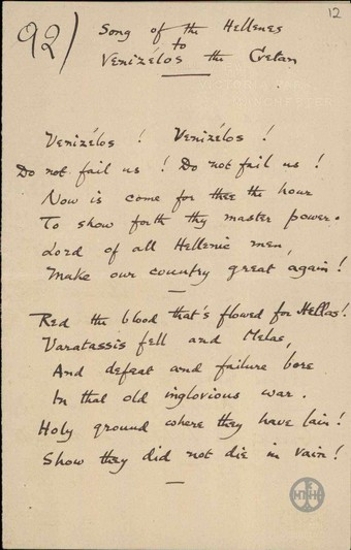 92)
12
Song of the Hellenes
to
Venizélos the Cretan
Venizélos ! Venizélos !
Do not fail us ! Do not fail us !
Now is come for thee the hour
To show forth thy master power.
Lord of all Hellenic men,
Make our country great again !
Red the blood that's flowed for Hellas !
Varatassis fell and Melas,
And defeat and failure bore
In that old inglorious war.
Holy ground where they have lain !
Show they did not die in vain !